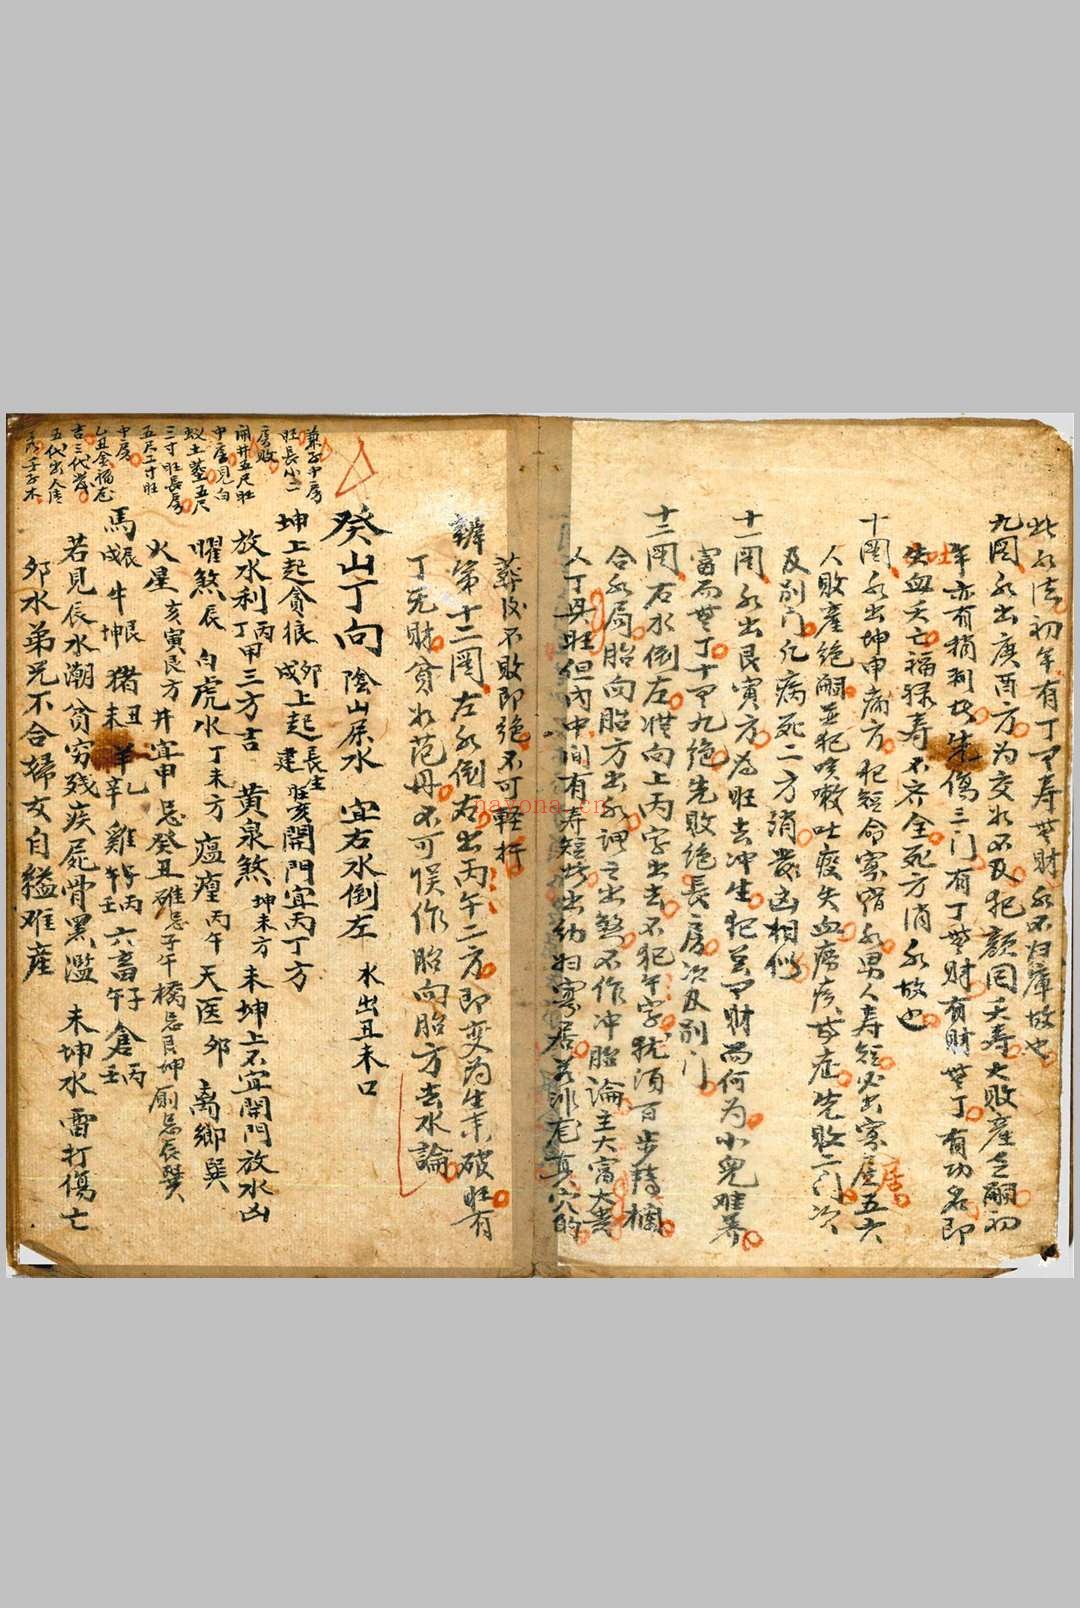 此水法初年有丁有寿無財水不归庫故也
九图水出庚酉方为交水不及犯颜回夭寿大败產乏嗣初
年亦有稍利故先傷三门有丁無财有财無丁有功名即
吐血夭亡福禄寿不齐全死方消水故也
十图水出坤申病方犯短命寡宿水男人寿短必出寡居五六
人敗產绝嗣並犯咳嗽吐痰失血癆疾等症先敗二门次
及别门亿病死二方消散凶相似
十一图水出艮寅方为旺去冲生犯有财而何为小兒难养
富而無丁十有九绝先敗绝長房次及别门
十二图右水倒左從向上丙字出去不犯午字犹须百步转欄
合水局胎向胎方出水謂之出煞不作冲胎論主大富大貴
人丁興旺但内中間有寿短些出幼妇寡居若非龙真穴的
葬後不敗即绝不可輕扦
辨第十二图左水倒右出丙午二方即变为生來破旺有
丁无财貧水范丹不可误作胎向胎方去水論
癸山丁向 陰山屬水 宜右水倒左 水出丑未口
坤上起贪狼 卯戌上起建 長生旺亥開門宜丙丁方
放水利丙丁甲三方吉 黄泉煞坤未方 未坤上不宜開門放水凶
曜煞辰 白虎水丁未方 瘟瘟丙午 天医卯 离鄉巽
火星亥寅艮方 井宜申 忌癸丑 碓忌子午 橋忌艮坤 廁忌辰巽
馬辰戌 牛艮坤 猪丑未 羊乙辛 雞丙壬 六畜子午 倉丙壬
若見辰水潮貧穷残疾屍骨黑濫 未坤水雷打傷亡
卯水弟兄不合婦女自縊难產
兼子午房
旺長小二
房敗
開井五尺旺
中房見白
蚁土墓五尺
三寸旺長房
五尺二寸旺
中房
乙丑金福龙
吉三代발
五代出人